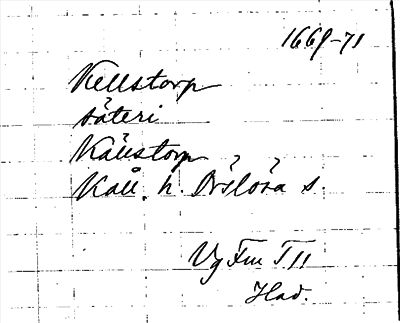 1669-71
Kellstorp
säteri
Källstorp
Kåll. h. Örslösa s.
Vg Fm T 11
Had.